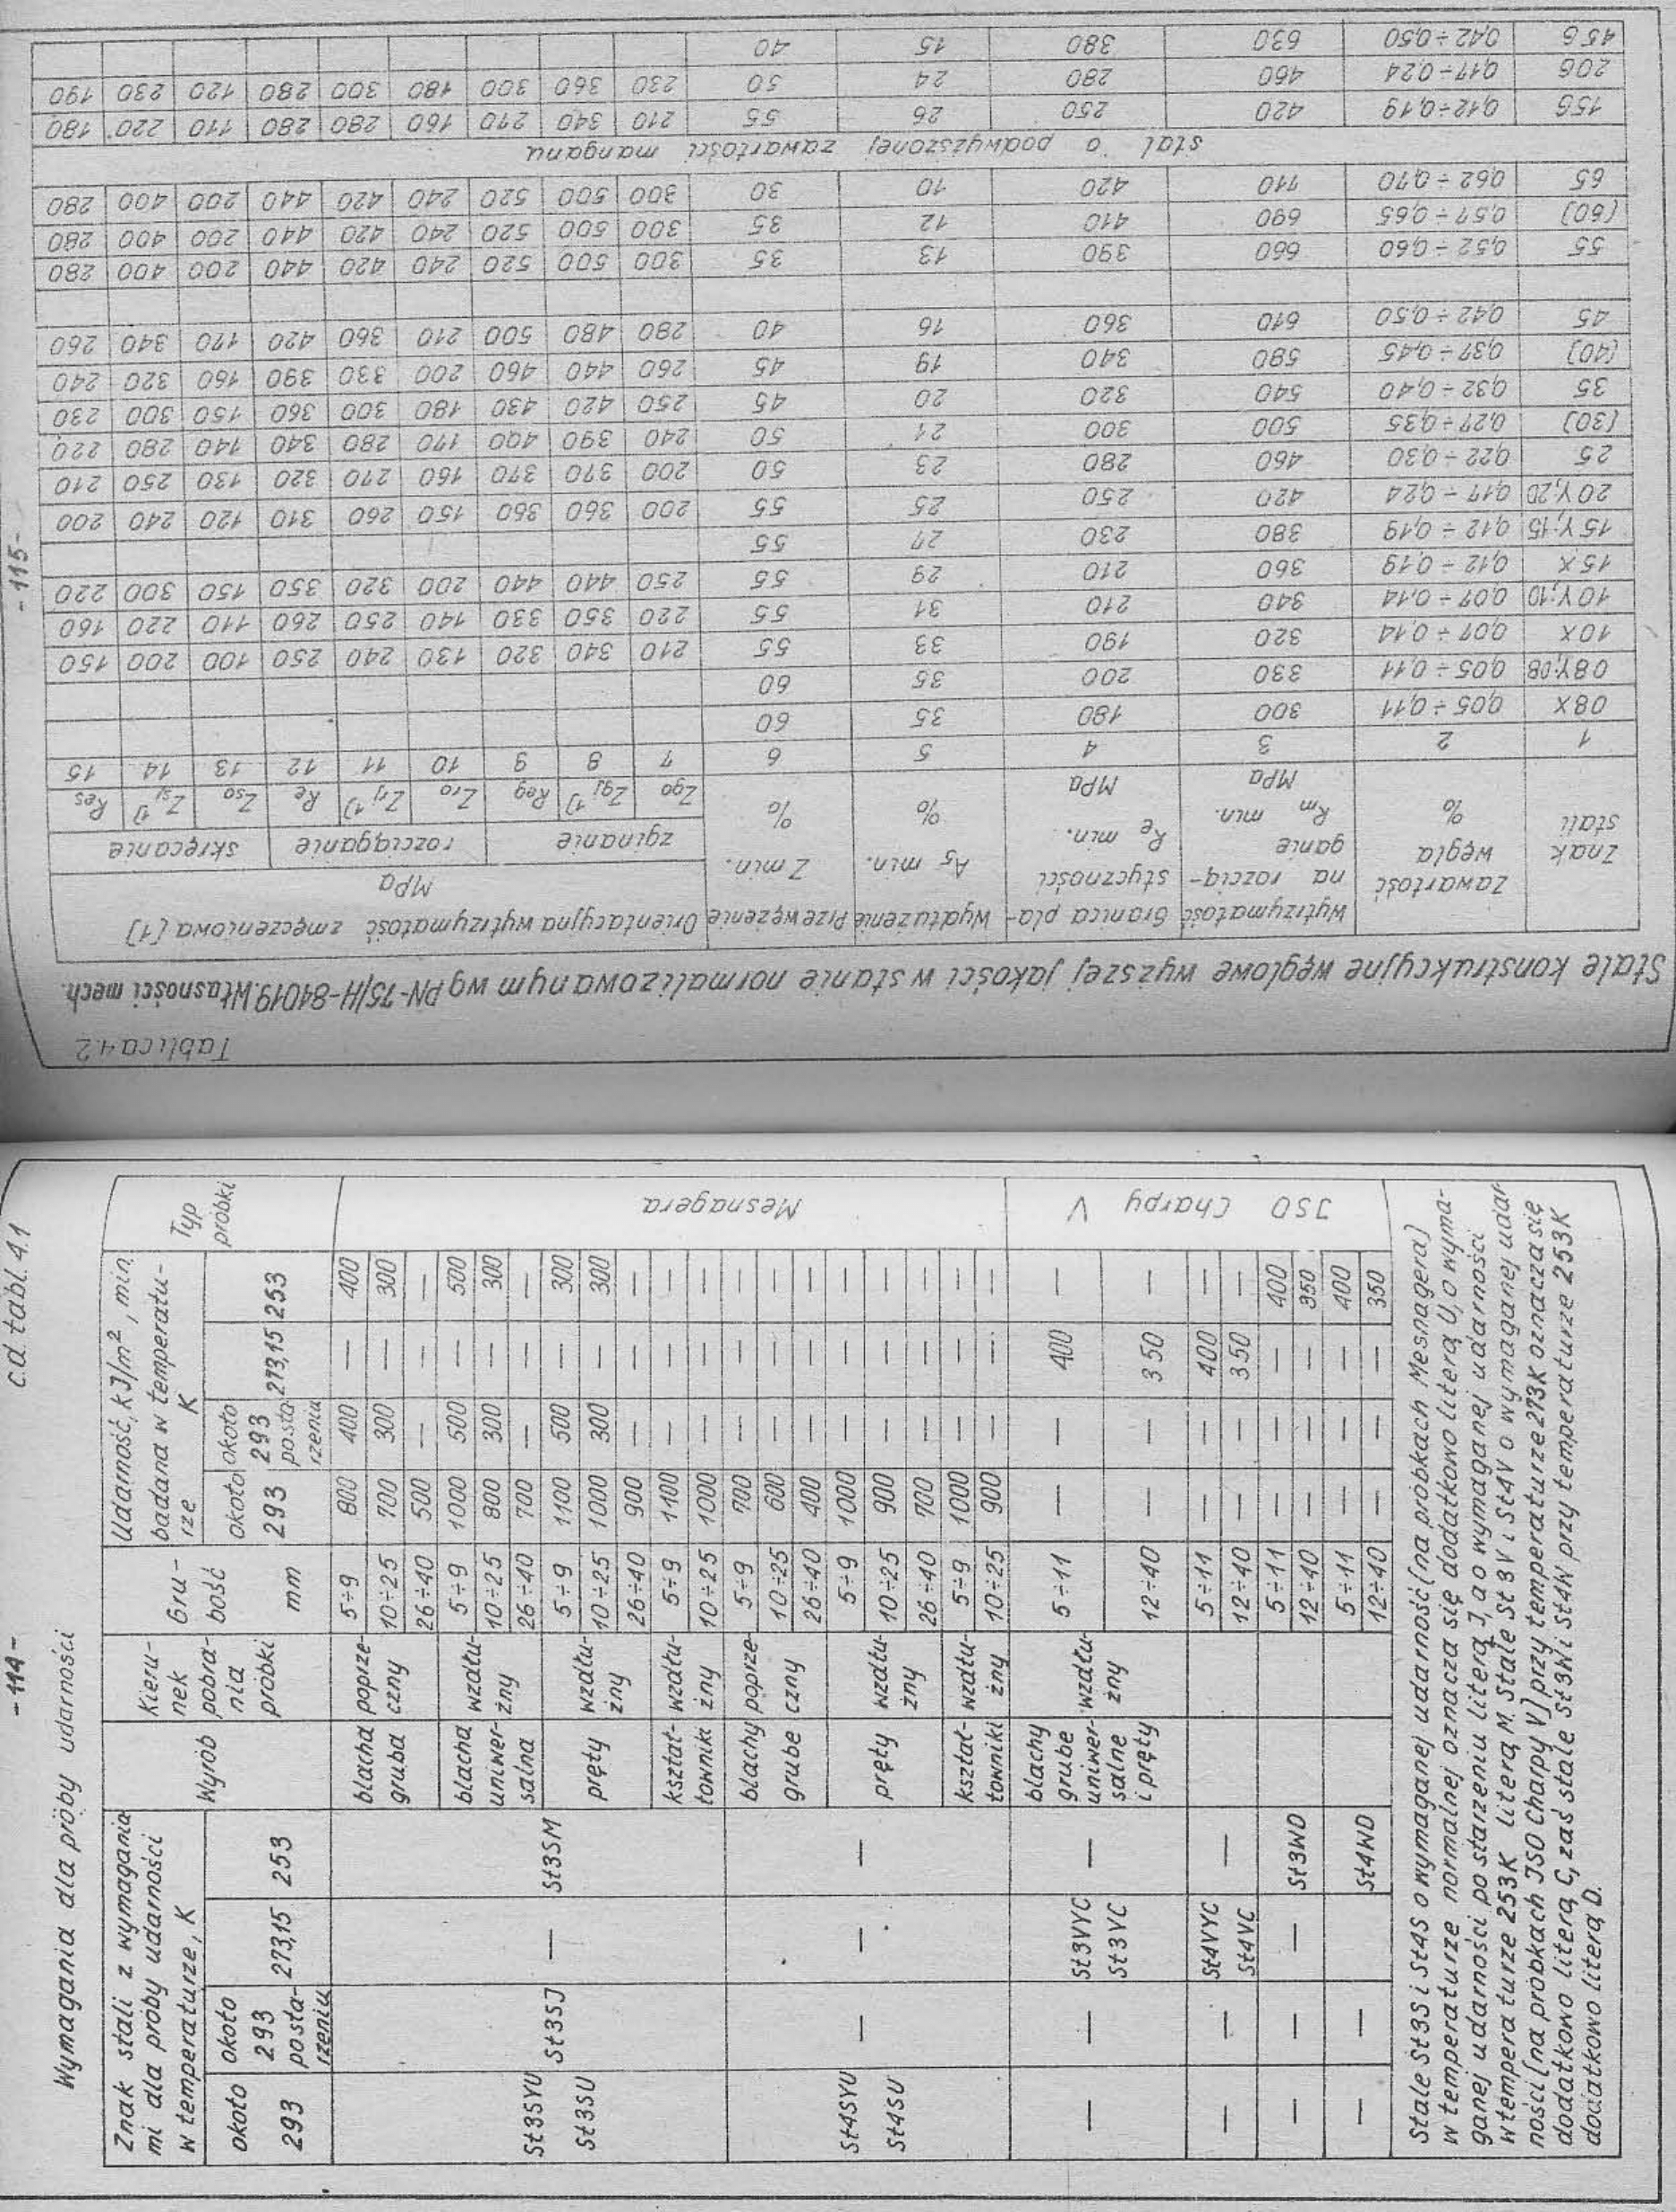 -114-
c.d. tabl. 4.1
Wymagania dla próby udarności
Znak stali z wymagania-
mi dla próby udarności
w temperaturze, K
około 293
około 293 po sta-rzeniu
273,15
253
Wyrób
Kieru-
nek
pobra-
nia
próbki
Gru-
bość
mm
Udarność, kJ/m², min.
badana w temperatu-
rze K
około 293
około 293 po sta-rzeniu
273,15
253
Typ
próbki
St3SYU
St3SU
St3SJ
—
St3SM
Mesnagera
blacha gruba
poprze-czny
5÷9 800 400 — 400
10÷25 700 300 — 300
26÷40 500 — — —
blacha uniwer-salna
wzdłu-żny
5÷9 1000 500 — 500
10÷25 800 300 — 300
26÷40 700 — — —
pręty
wzdłu-żny
5÷9 1100 500 — 300
10÷25 1000 300 — 300
26÷40 900 — — —
kształ-towniki
wzdłu-żny
5÷9 1100 — — —
10÷25 1000 — — —
St4SYU
St4SU
— — —
blachy grube
poprze-czny
5÷9 700 — — —
10÷25 600 — — —
26÷40 400 — — —
pręty
wzdłu-żny
5÷9 1000 — — —
10÷25 900 — — —
26÷40 700 — — —
kształ-towniki
wzdłu-żny
5÷9 1000 — — —
10÷25 900 — — —
— —
St3VYC
St3VC
—
blachy grube uniwer-salne i pręty
wzdłu-żny
JSO Charpy V
5÷11 — — 400 —
12÷40 — — 350 —
— —
St4VYC
St4VC
—
5÷11 — — 400 —
12÷40 — — 350 —
— — — St3WD
5÷11 — — — 400
12÷40 — — — 350
— — St4WD
5÷11 — — — 400
12÷40 — — — 350
Stale St3S i St4S o wymaganej udarności (na próbkach Mesnagera)
w temperaturze normalnej oznacza się dodatkowo literą U, o wyma-
ganej udarności po starzeniu literą J, a o wymaganej udarności
w temperaturze 253K literą M. Stale St3V i St4V o wymaganej udar-
ności (na próbkach JSO Charpy V) przy temperaturze 273K oznacza się
dodatkowo literą C, zaś stale St3W i St4W przy temperaturze 253K
dodatkowo literą D.
-115-
Tablica 4.2
Stale konstrukcyjne węglowe wyższej jakości w stanie normalizowanym wg PN-75/H-84019. Własności mech.
Znak stali
Zawartość węgla %
Wytrzymałość na rozcią-ganie Rm min. MPa
Granica pla-styczności Re min. MPa
Wydłużenie A5 min. %
Przewężenie Z min. %
Orientacyjna wytrzymałość zmęczeniowa (1) MPa
zginanie rozciąganie skręcanie
Zgo Zgj 1) Reg Zro Zrj 1) Re Zso Zsj 1) Res
1 2 3 4 5 6 7 8 9 10 11 12 13 14 15
08X 0,05÷0,11 300 180 35 60
08Y;08 0,05÷0,11 330 200 35 60
10X 0,07÷0,14 320 190 33 55 210 340 320 130 240 250 100 200 150
10Y;10 0,07÷0,14 340 210 31 55 220 350 330 140 250 260 110 220 160
15X 0,12÷0,19 360 210 29 55 250 440 440 200 320 350 150 300 220
15Y;15 0,12÷0,19 380 230 27 55
20Y;20 0,17÷0,24 420 250 25 55 200 360 360 150 260 310 120 240 200
25 0,22÷0,30 460 280 23 50 200 370 370 160 270 320 130 250 210
(30) 0,27÷0,35 500 300 21 50 240 390 400 170 280 340 140 280 220
35 0,32÷0,40 540 320 20 45 250 420 430 180 300 360 150 300 230
(40) 0,37÷0,45 580 340 19 45 260 440 460 200 330 390 160 320 240
45 0,42÷0,50 610 360 16 40 280 480 500 210 360 420 170 340 260
55 0,52÷0,60 660 390 13 35 300 500 520 240 420 440 200 400 280
(60) 0,57÷0,65 690 410 12 35 300 500 520 240 420 440 200 400 280
65 0,62÷0,70 710 420 10 30 300 500 520 240 420 440 200 400 280
stal o podwyższonej zawartości manganu
15G 0,12÷0,19 420 250 26 55 210 340 270 160 280 280 110 220 180
20G 0,17÷0,24 460 280 24 50 230 360 300 180 300 280 120 230 190
45G 0,42÷0,50 630 380 15 40